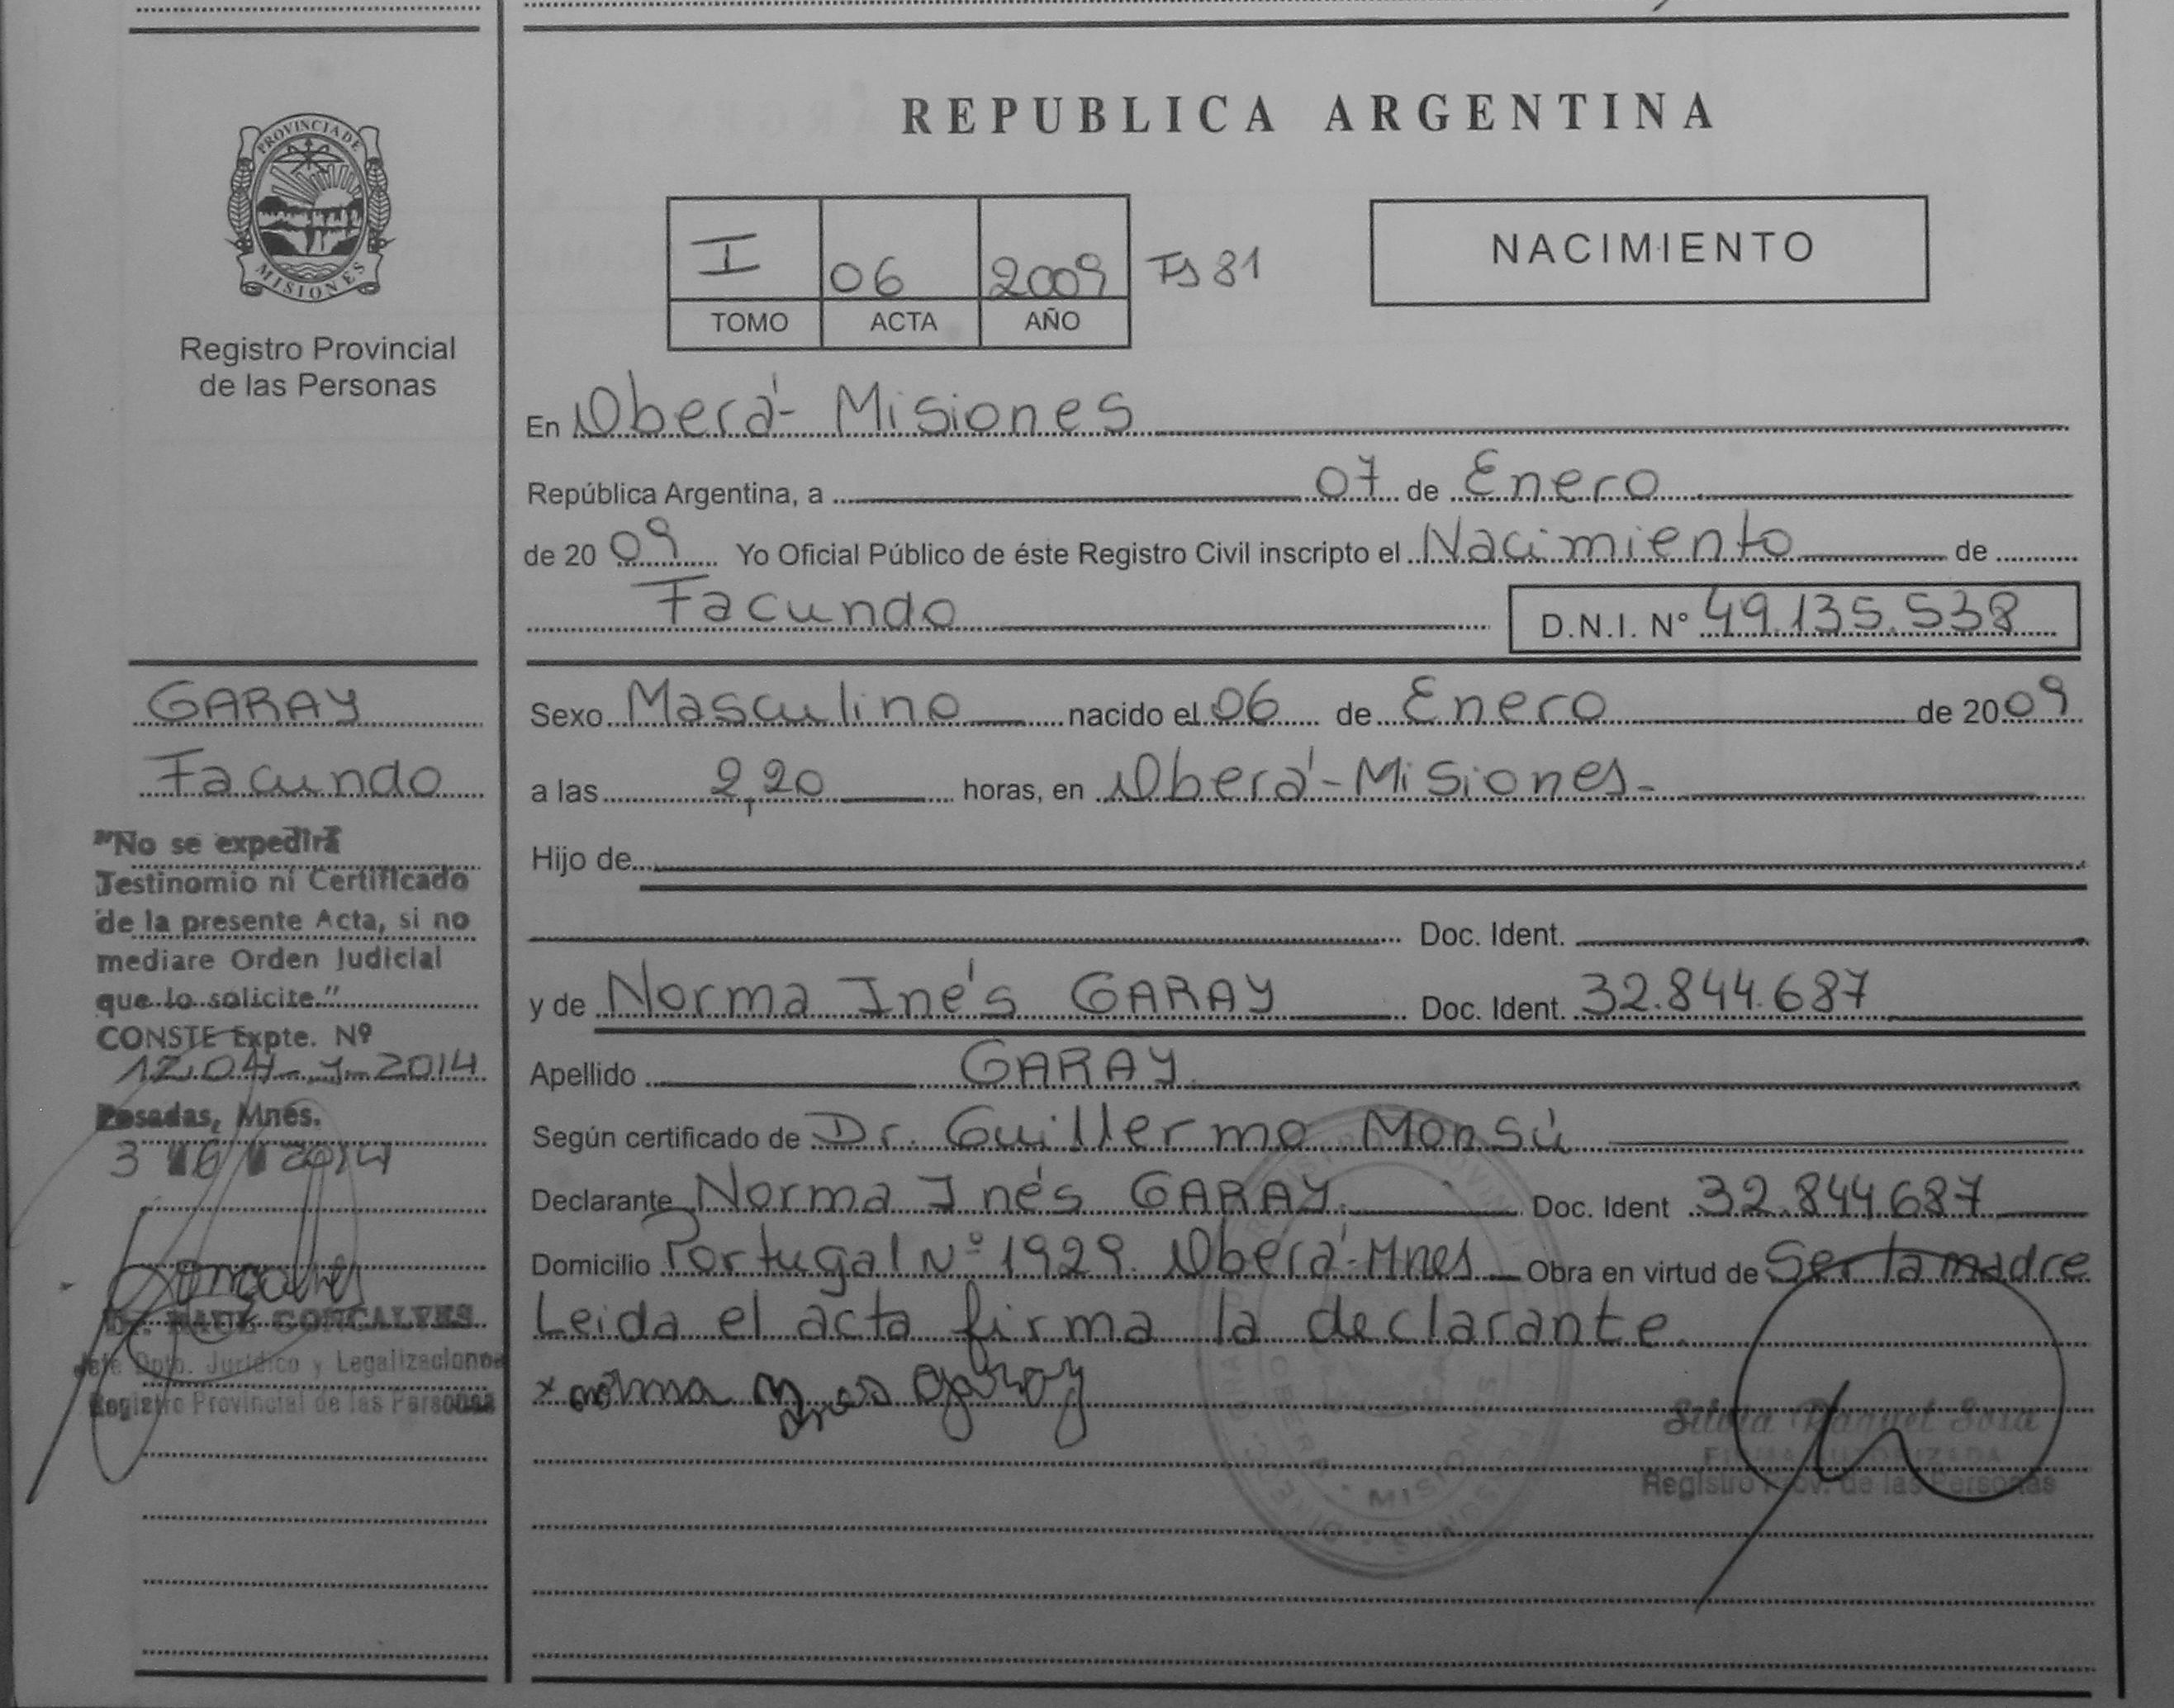 PROVINCIA DE
MISIONES
Registro Provincial
de las Personas
GARAY
Facundo
"No se expedirá
Testinomio ni Certificado
de la presente Acta, si no
mediare Orden Judicial
que lo solicite."
CONSTE Expte. Nº
2014
Posadas, Mnes.
2014
Dr. RAUL GONCALVES
Jefe Dpto. Jurídico y Legalizaciones
Registro Provincial de las Personas
REPUBLICA ARGENTINA
I 06 2009 Fs 81
TOMO ACTA AÑO
NACIMIENTO
En Oberá - Misiones
República Argentina, a 07 de Enero
de 20 09 Yo Oficial Público de éste Registro Civil inscripto el Nacimiento de
Facundo D.N.I. N° 49.135.538
Sexo Masculino nacido el 06 de Enero de 20 09
a las 2,20 horas, en Oberá - Misiones -
Hijo de
Doc. Ident.
y de Norma Inés GARAY Doc. Ident. 32.844.687
Apellido GARAY
Según certificado de Dr. Guillermo Monsú
Declarante Norma Inés GARAY. Doc. Ident 32.844.687
Domicilio Portugal Nº 1929. Oberá - Mnes Obra en virtud de Ser la madre
Leida el acta firma la declarante.
x norma Ines garay
Silvia Raquel Sosa
FIRMA AUTORIZADA
Registro Prov. de las Personas
MISIONES